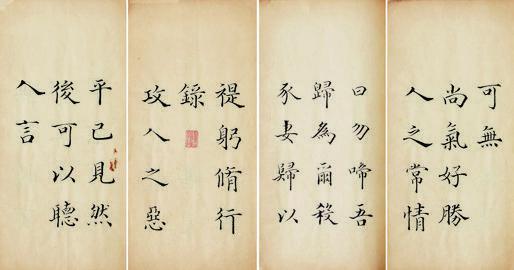 可無
尚氣好勝
人之常情
曰勿啼吾
歸為爾殺
豕妻歸以
禔躬脩行
錄
攻人之惡
平己見然
後可以聽
人言